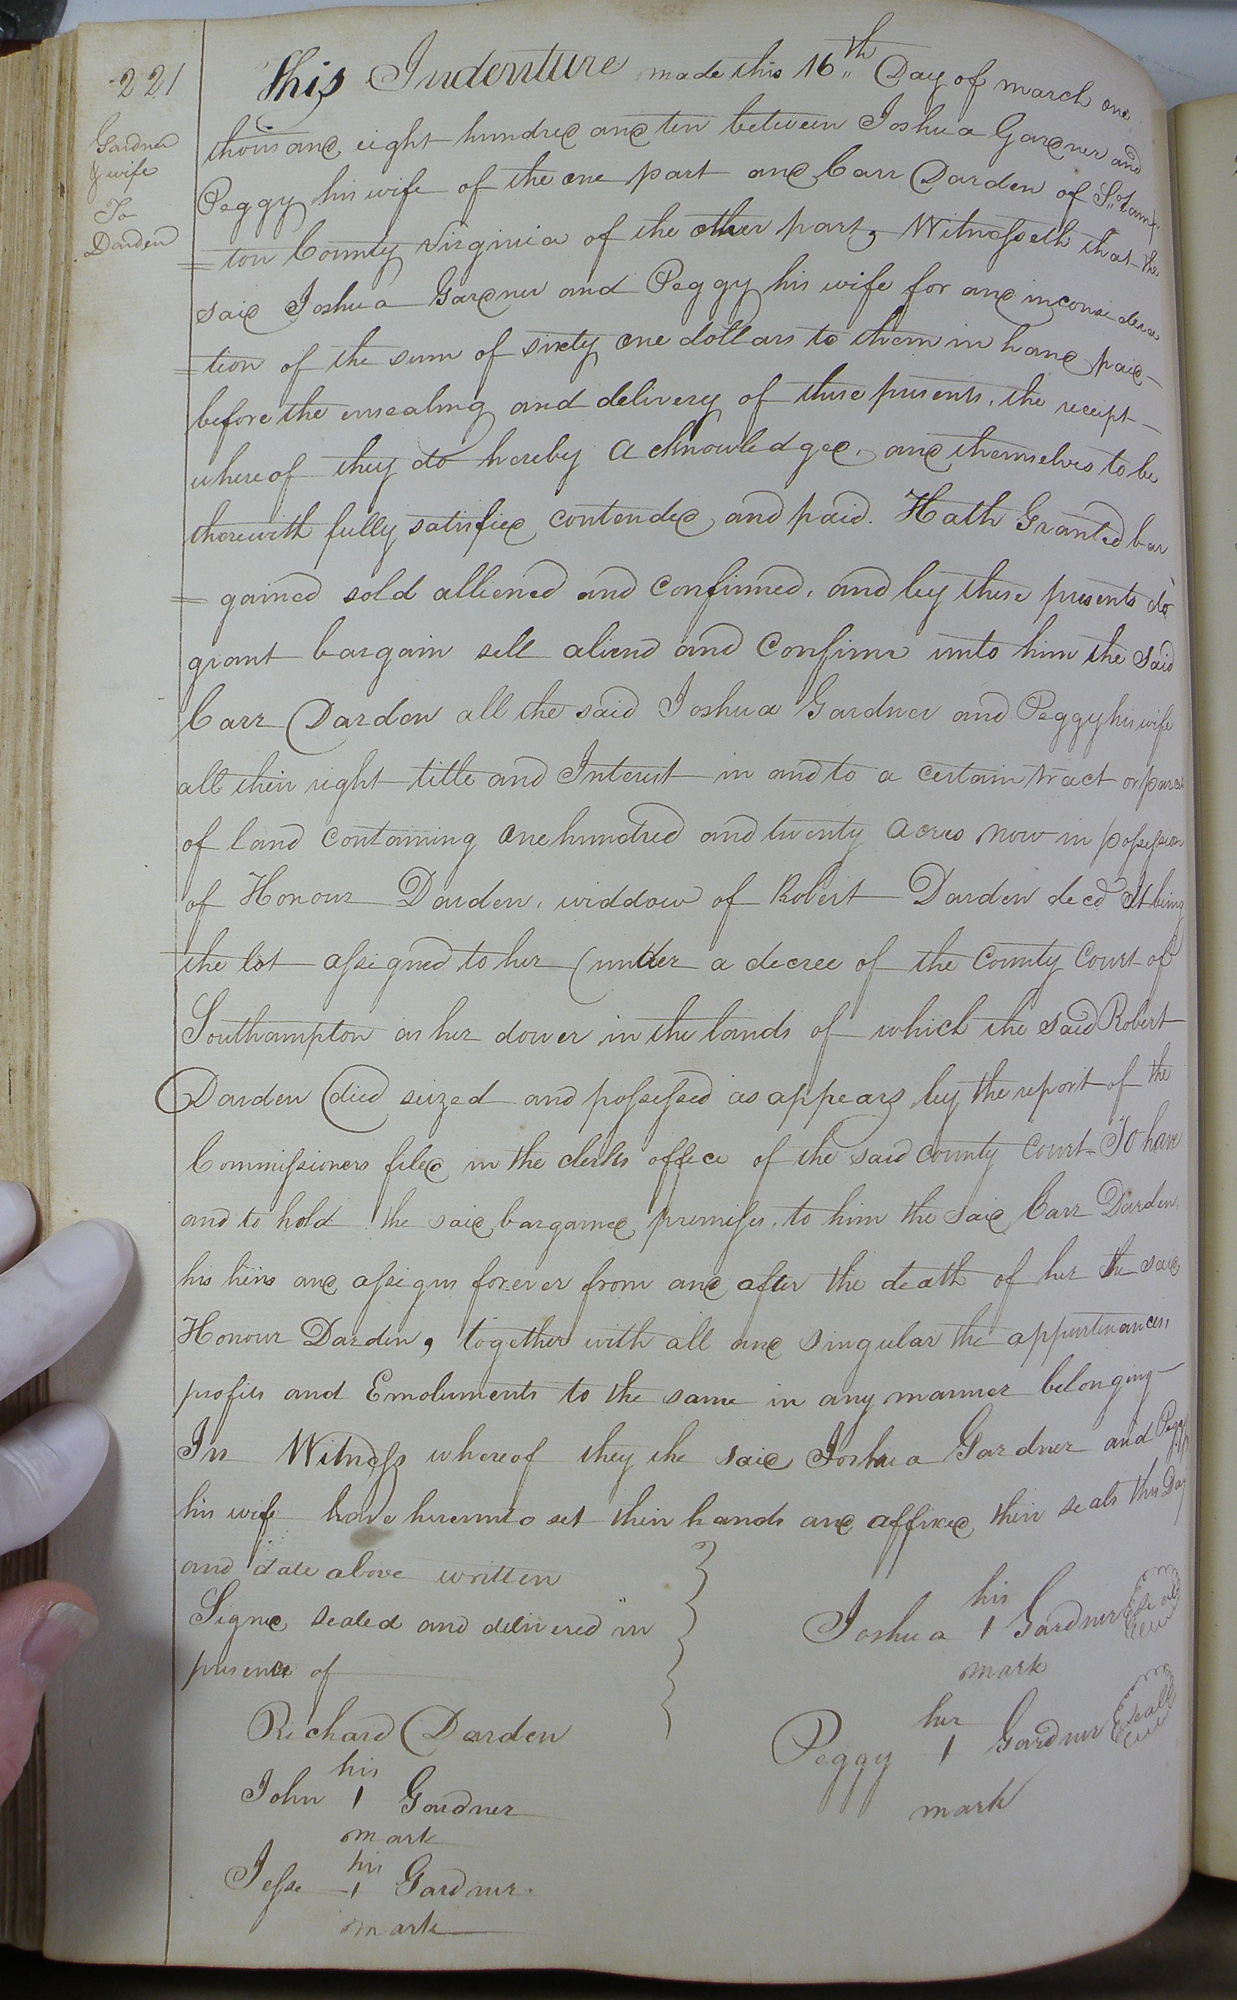 221
Gardner
& wife
To
Darden
This Indenture made this 16th Day of march one
thousand eight hundred and ten between Joshua Gardner and
Peggy his wife of the one part and Carr Darden of S.°. tamp
= ton County virginia of the other part, Witnesseth that the
said Joshua Gardner and Peggy his wife for and inconsidera
= tion of the sum of sixty one dollars to them in hand paid
before the ensealing and delivery of these presents, the receipt
whereof they do hereby acknowledged, and themselves to be
therewith fully satisfied contended and paid. Hath Granted bar
= gained sold alliened and Confirmed, and by these presents do
grant bargain sell aliend and Confirm unto him the Said
Carr Darden all the said Joshua Gardner and Peggy his wife
all their right title and Interest in and to a certain tract or parcel
of land containing one hundred and twenty acres now in possession
of Honour Darden, widdow of Robert Darden decd It being
the lot assigned to her (under a decree of the County Court of
Southampton as her dower in the lands of which the said Robert
Darden (died seized and possessed as appears by the report of the
Commissioners filed in the clerks office of the said county Court- To have
and to hold the said bargained premises, to him the said Carr Darden,
his heirs and assigns forever from and after the death of her the said
Honour Darden, together with all and singular the appurtenances,
profits and Emoluments to the same in any manner belonging
In Witness whereof they the said Joshua Gardner and Peggy
his wife have hereunto set their hands and affixed their seals this Day
and date above written
Signed sealed and delivered in
presence of
Richard Darden
his
John 1 Gardner
mark
his
Jesse 1 Gardner
mark
his
Joshua 1 Gardner Seal
mark
her
Peggy 1 Gardner Seal
mark